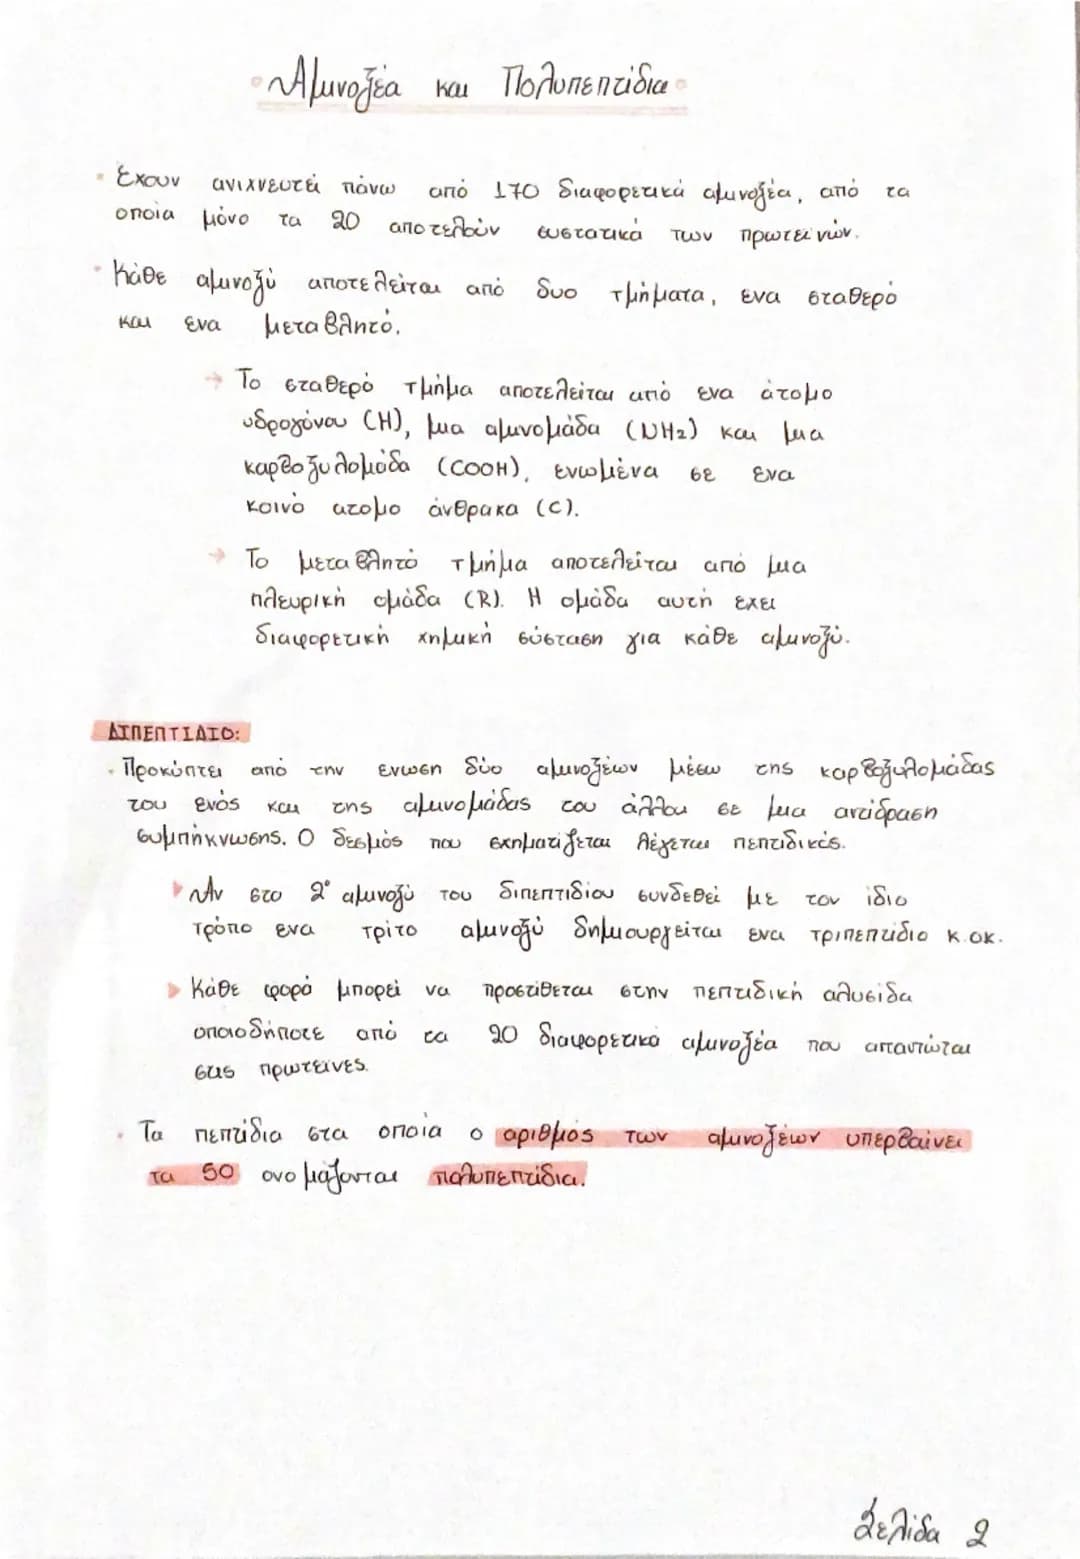 Αμινοξέα και Πολυπεπτίδια
• Έχουν ανιχνευτεί πάνω από 170 διαφορετικά αμινοξέα, από τα
οποία μόνο τα 20 αποτελούν συστατικά των πρωτεϊνών.
• Κάθε αμινοξύ αποτελείται από δυο τμήματα, ενα σταθερό
και ενα μεταβλητό.
→ Το σταθερό τμήμα αποτελείται από ενα άτομο
υδρογόνου (H), μια αμινομάδα (NH2) και μια
καρβοξυλομάδα (COOH), ενωμένα σε ενα
κοινό ατομο άνθρακα (C).
→ Το μεταβλητό τμήμα αποτελείται από μια
πλευρική ομάδα (R). Η ομάδα αυτή εχει
διαφορετική χημική σύσταση για κάθε αμινοξύ.
ΔΙΠΕΠΤΙΔΙΟ:
• Προκύπτει από την ενωση δύο αμινοξέων μέσω της καρβοξυλομάδας
του ενός και της αμινομάδας του άλλου σε μια αντίδραση
συμπύκνωσης. Ο δεσμός που σχηματίζεται λέγεται πεπτιδικός.
▸ Αν στο 2° αμινοξύ του διπεπτιδίου συνδεθεί με τον ίδιο
τρόπο ενα τρίτο αμινοξύ δημιουργείται ενα τριπεπτίδιο κ.οκ.
▸ Κάθε φορά μπορεί να προστίθεται στην πεπτιδική αλυσίδα
οποιοδήποτε από τα 20 διαφορετικά αμινοξέα που απαντώται
στις πρωτεϊνες.
• Τα πεπτίδια στα οποία ο αριθμός των αμινοξέων υπερβαίνει
τα 50 ονομάζονται πολυπεπτίδια.
Σελίδα 2